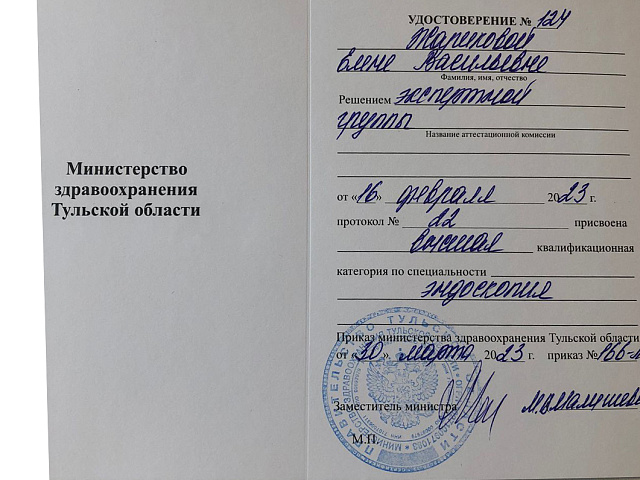 Министерство
здравоохранения
Тульской области
УДОСТОВЕРЕНИЕ № 124
Жариковой
Елене Васильевне
Фамилия, имя, отчество
Решением экспертной
группы
Название аттестационной комиссии
от «16» февраля 2023 г.
протокол № 22 присвоена
высшая квалификационная
категория по специальности
эндоскопия
Приказ министерства здравоохранения Тульской области
от «30» марта 2023 г. приказ №
Заместитель министра
М.П.